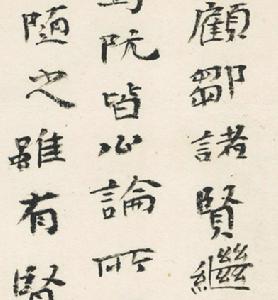 顧鄒諸賢繼
阮皆公論所
隨之雖有賢